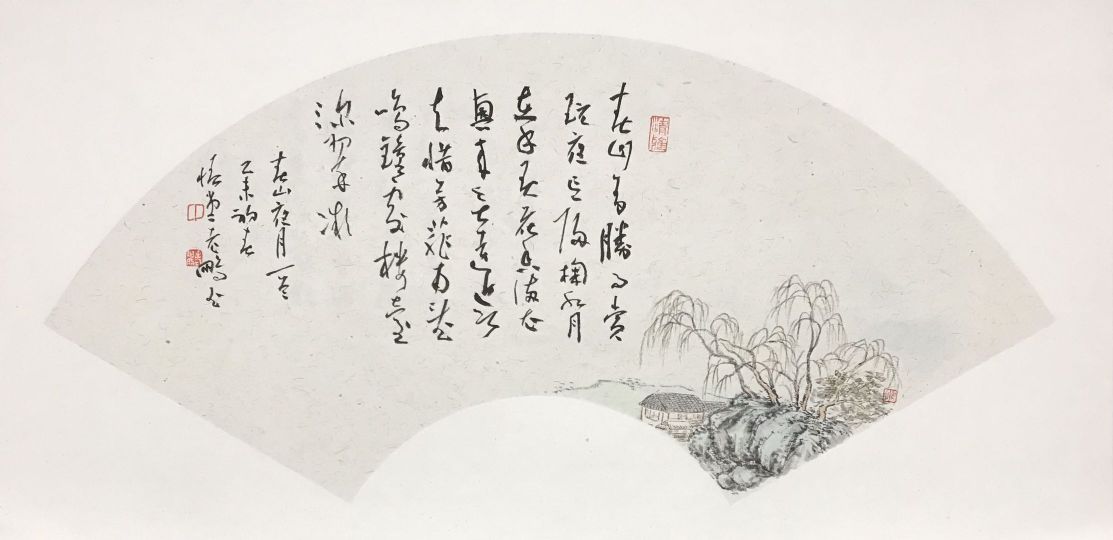 春山多勝事賞
玩夜忘歸掬水月
在手弄花香滿衣
興來無遠近欲
去惜芳菲南望
鳴鐘處樓臺
深翠微
春山夜月一首
乙未初春
堂志鵬書